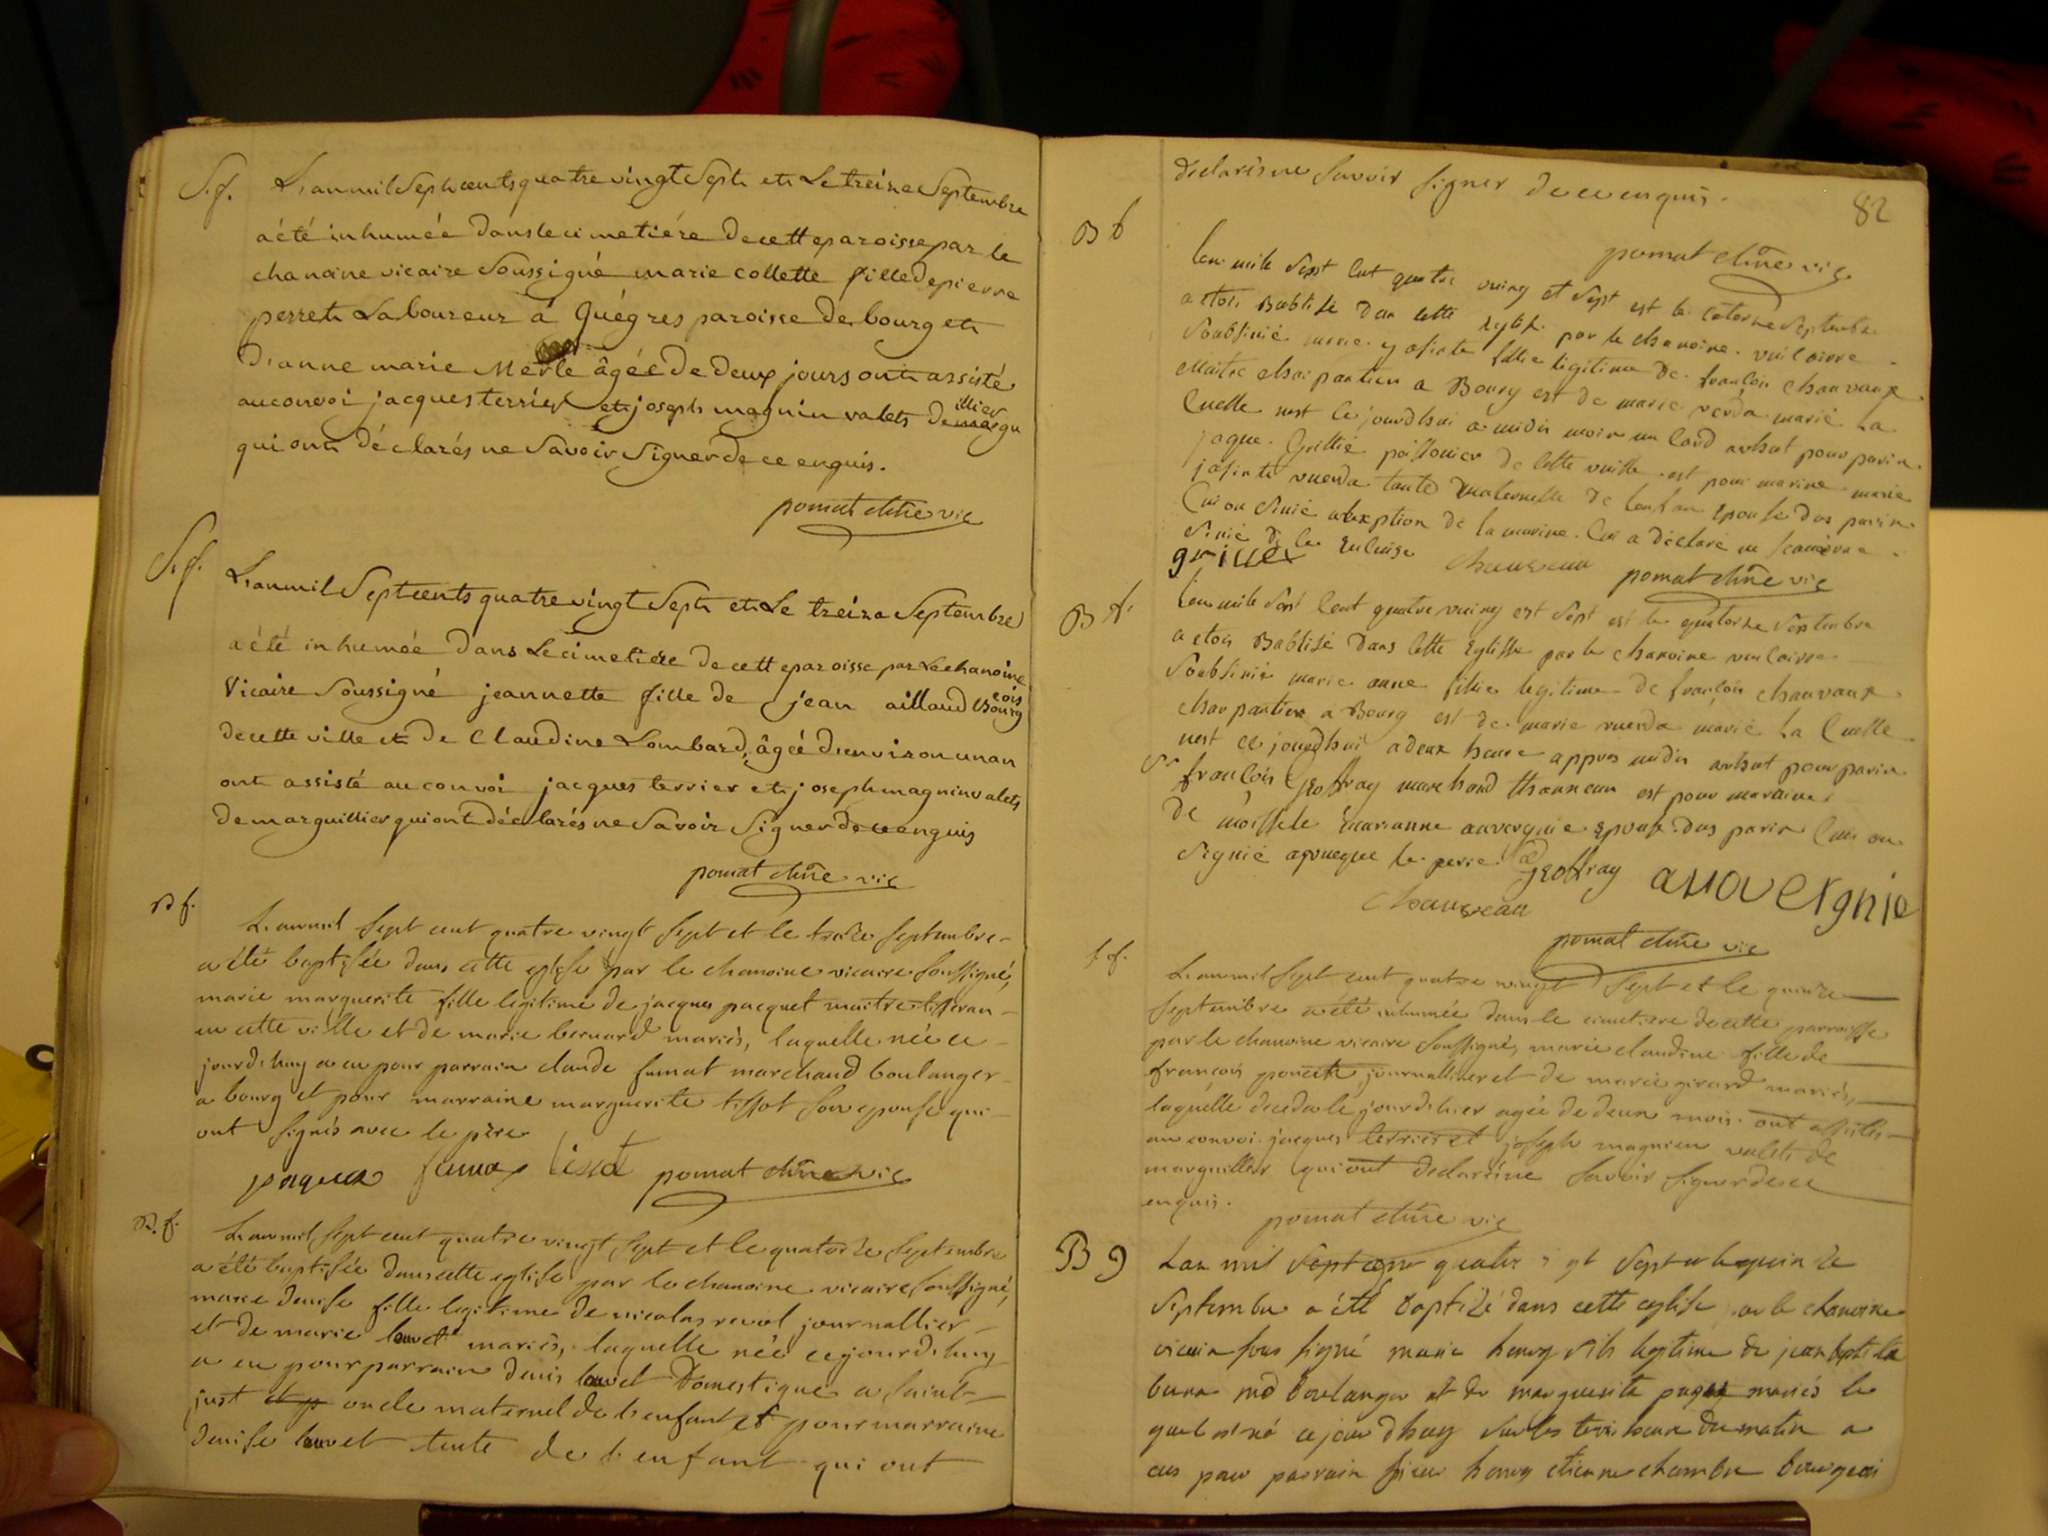 S.f. L'an mil Sept cents quatre vingt Sept et Le treize Septembre
a été inhumée dans le cimetiére de cette paroisse par le
chanoine vicaire Soussigné marie collette fille de pierre
perret Laboureur à Quégres paroisse de bourg et
d'anne marie Merle âgée de deux jours ont assisté
au convoi jacques terrier et joseph magnin valets de marguillier
qui ont déclarés ne Savoir Signer de ce enquis.
pomat chne vic
S.f. L'an mil Sept cents quatre vingt Sept et Le treize Septembre
a été inhumée dans Le cimetiére de cette paroisse par Le chanoine
Vicaire Soussigné jeannette fille de jean aillaud Bourgeois
de cette ville et de Claudine Lombard, âgée d'environ un an
ont assisté au convoi jacques terrier et joseph magnin valets
de marguillier qui ont déclarés ne Savoir Signer de ce enquis
pomat chne vic
B f. L'an mil Sept cent quatre vingt Sept et le treize Septembre
a été baptisée dans cette eglise par le chanoine vicaire soussigné,
marie marguerite fille legitime de jacques pacquet maitre tisseran
en cette ville et de marie bernard mariés, laquelle née ce
jourdhuy a eu pour parrain claude fumat marchand boulanger
a bourg et pour marraine marguerite tissot son epouse qui
ont signés avec le père
pomat chne vic
B. f. L'an mil Sept cent quatre vingt Sept et le quatorze Septembre
a été baptisée dans cette eglise par le chanoine vicaire soussigné,
marie denise fille legitime de nicolas revol journallier
et de marie louvet mariés, laquelle née ce jourdhuy
a eu pour parrain denis louvet Domestique a Saint
just oncle maternel de l'enfant et pour marraine
denise louvet tante de l'enfant qui ont
declarés ne Savoir signer de ce enquis.
82
pomat chne vic
B f lan mile Sept Cent quatre vuing et Sept est le catorse Septembre
a etois Babtisé dan cette Eglise par le chanoine vuicairre
Soubsinié marie josinte fillie legitime de francois chauvaux
Maitre charpantier a Bourg est de marie verda marié La
Quelle nest ce jourdhui a midis moin un card arhut pour parin
jaque Grillié poissonier de cette vuille est pour marine marie
josinte vuerda tante maternelle de lanfan Epouse dus parin
Qui on Sinié a lexption de la marine Qui a déclaré
Sinié de Enluise
grillier chauveau pomat chne vic
B f. lan mile Sept Cent quatre vuing est Sept est le quatorse Septembre
a etois Babtisé dans cette Eglisse par le chanoine vuicairre
Soubsinié marie anne fillie legitime de francois chauvaux
charpantier a Bourg est de marie vuerda marié La Quelle
nest ce jourdhui a deux heure appres midis arhut pour parin
Sr francois Geoffray marchand thanneur est pour maraine
de moisselle Emarianne auvergnie Epouse dus parin Qui on
Signié avueque le perre Geoffray auvergnie
chauveau
pomat chne vic
S f. L'an mil Sept cent quatre vingt Sept et le quinze
Septembre a été inhumée dans le cimetiere de cette parroisse
par le chanoine vicaire soussigné, marie claudine fille de
françois poncet journallier et de marie girard mariés,
laquelle decedale jourdhier agée de deux mois. ont assistés
au convoi jacques terrier et joseph magnien valets de
marguillier qui ont declarés ne Savoir signer de ce
enquis.
pomat chne vic
B g Lan mil Sept cent quatre vingt Sept et le quinze
Septembre a été baptizé dans cette eglise par le chanoine
vicaire sous signé marie henry fils legitime de jean baptiste
md boulanger et de marguerite mariés le
quel est né ce jourdhuy sur les trois heures du matin a
eus pour parrain sieur henry etienne chambre bourgeois